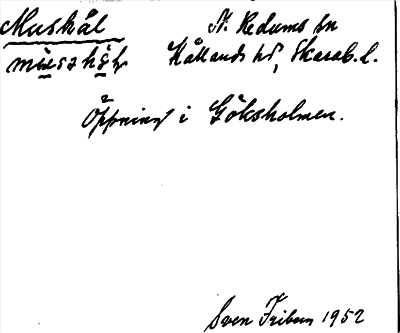 Muskål N. Kedums sn
Kållands hd, Skarab. l.
Öppning i Göksholmen.
Sven Tribun 1952